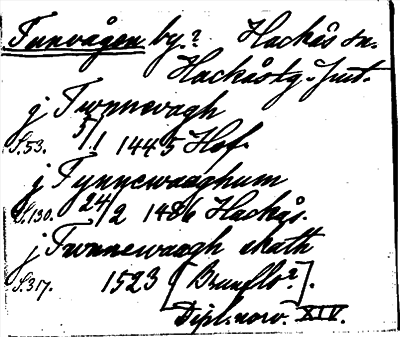 Funvågen by? Hackås sn.
Hackås tg. Jmt.
j Twnnevagh
S.53. 5/1 1445 Hof.
j Fynnewaaghum
S.130. 24/2 1486 Hackås.
j Fwnnewaagh skath
S.317. 1523 [Brunflo?].
Dipl. norv. XIV.